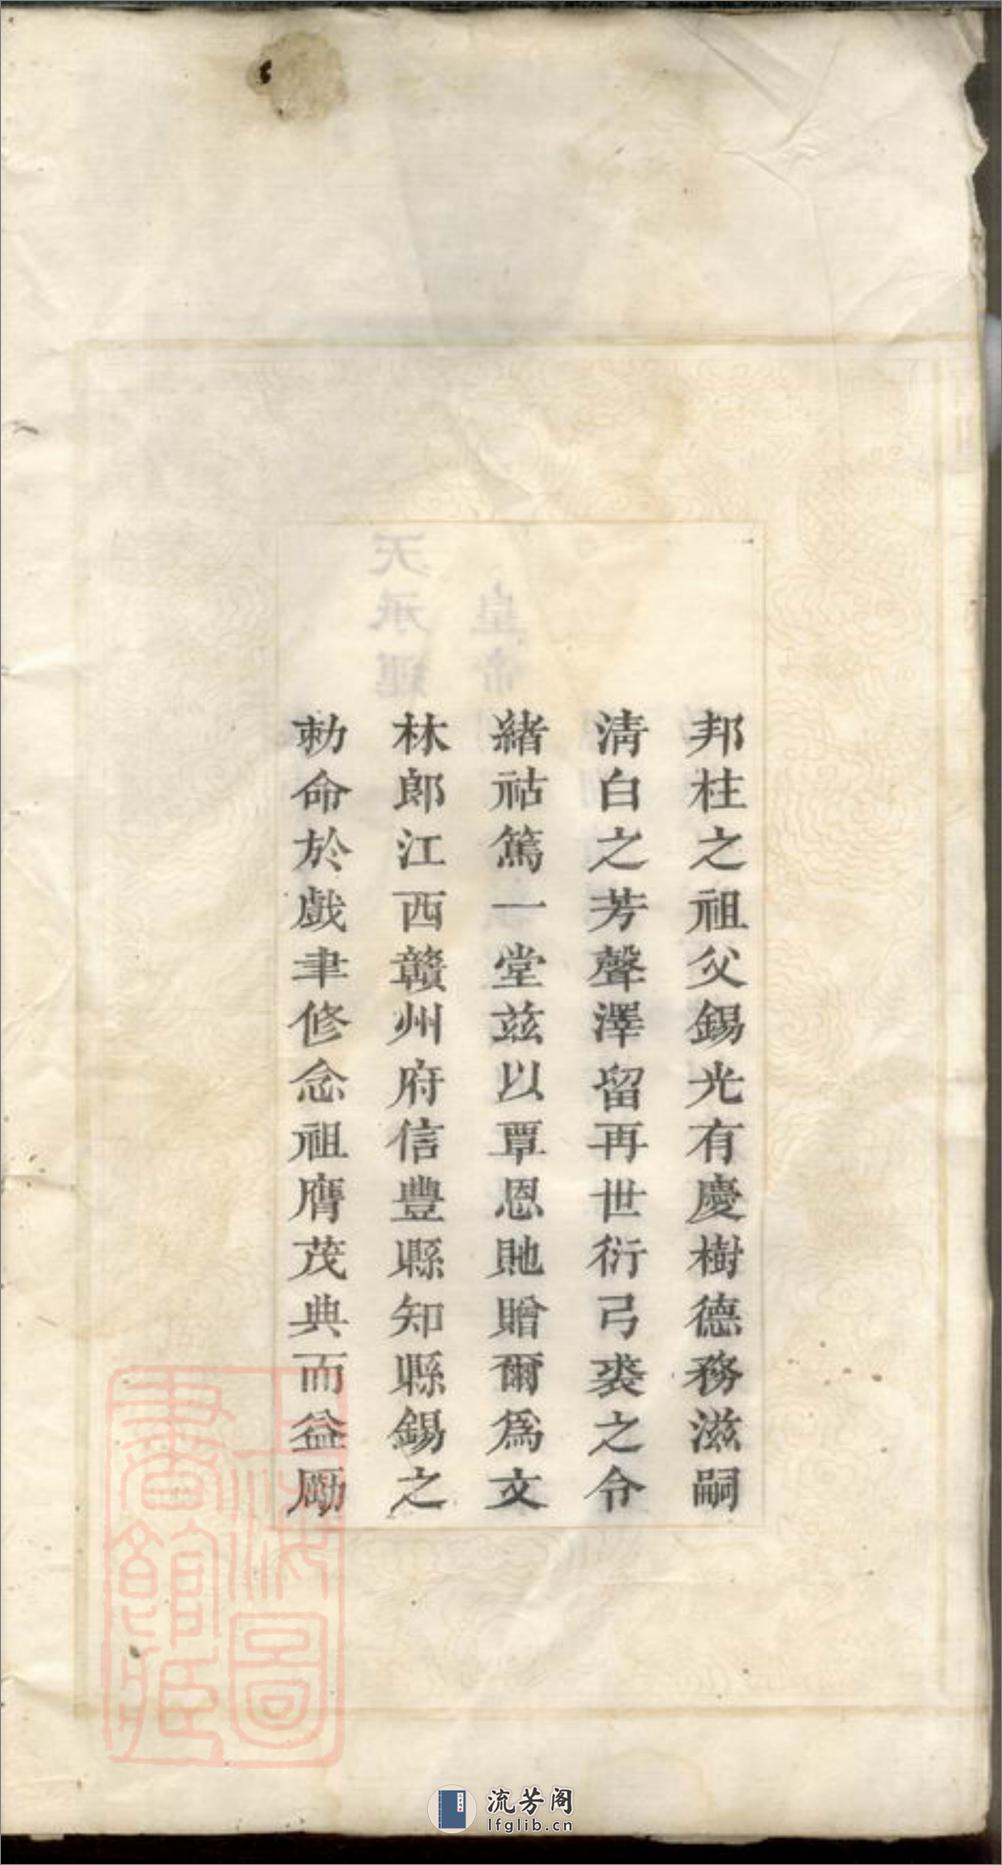 邦柱之祖父錫光有慶樹德務滋嗣
清白之芳聲澤留再世衍弓裘之令
緒祜篤一堂茲以覃恩貤贈爾為文
林郎江西贛州府信豐縣知縣錫之
勅命於戲聿修念祖膺茂典而益勵
皇帝
天承運
上海圖
書館藏
流芳阁
lfglib.cn